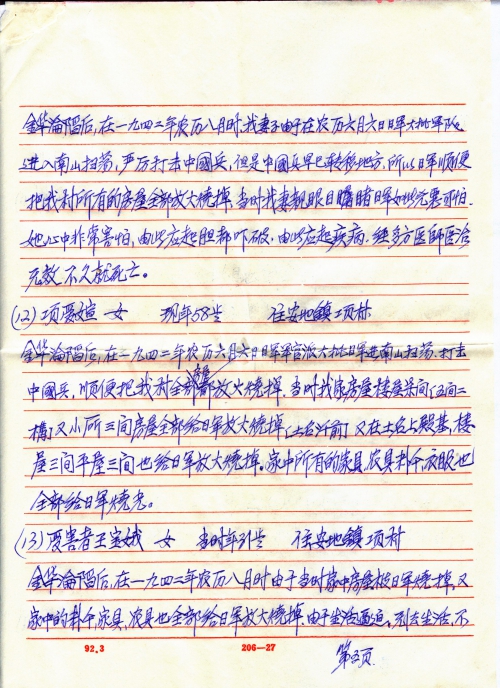 金华淪陷后,在一九四二年农历八月时,我妻子由于在农历六月六日日军大批军队,
进入南山扫荡,严厉打击中國兵,但是中國兵早已転移地方,所以日軍順便
把我村所有的房屋全部放火燒掉,当时我妻親眼目睹日軍如此兇悪可怕.
她心中非常害怕,由此应起胆都吓破,由此应起疾病.経多方医師医治
无效不久就死亡。
(12) 项 女 现年58岁 住安地鎮项村
金华淪陷后,在一九四二年农历六月六日日軍軍官派大批日軍进南山扫荡.打击
中國兵,順便把我村全部都放火燒掉.当时我家房屋楼屋柒间(五间二
橗)又小所三间房屋全部給日軍放火燒掉(土名 前)又在土名上殿基,楼
屋三间平屋三间也給日軍放火燒掉.家中所有的家具,农具 衣服也
全部給日軍燒光。
(13) 受害者王宝娥 女 当时年31岁 住安地鎮项村
金华淪陷后,在一九四二年农历八月时由于当时家中房屋被日軍燒掉,又
家中的 家具,农具也全部給日軍放火燒掉.由于生活 迫,到去生活,不
92.3 206—27
第五页